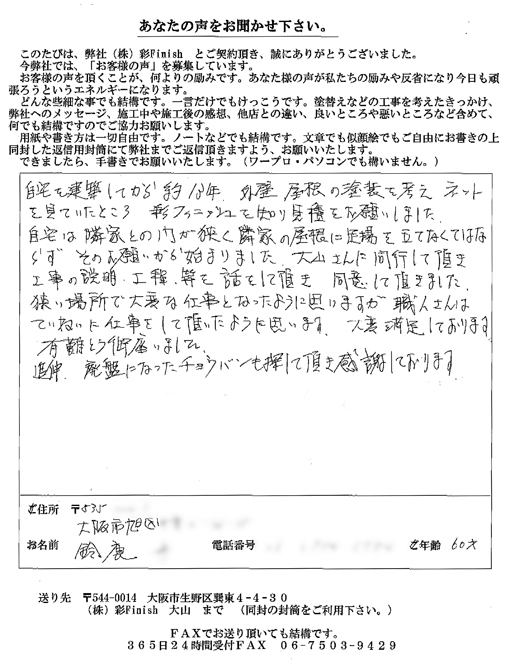 あなたの声をお聞かせ下さい。
このたびは、弊社（株）彩Finish とご契約頂き、誠にありがとうございました。
今弊社では、「お客様の声」を募集しています。
お客様の声を頂くことが、何よりの励みです。あなた様の声が私たちの励みや反省になり今日も頑
張ろうというエネルギーになります。
どんな些細な事でも結構です。一言だけでもけっこうです。塗替えなどの工事を考えたきっかけ、
弊社へのメッセージ、施工中や施工後の感想、他店との違い、良いところや悪いところなど含めて、
何でも結構ですのでご協力お願いします。
用紙や書き方は一切自由です。ノートなどでも結構です。文章でも似顔絵でもご自由にお書きの上
同封した返信用封筒にて弊社までご返信頂きますよう、お願いいたします。
できましたら、手書きでお願いいたします。（ワープロ・パソコンでも構いません。）
自宅を建築してから約18年 外壁 屋根の塗装を考え ネット
を見ていたところ 彩フィニッシュを知り見積をお願いしました
自宅は隣家との内が狭く隣家の屋根に足場を立てなくてはな
らず そのお願いから始まりました 大山さんに同行して頂き
工事の説明・工程 等を話をして頂き 同意して頂きました
狭い場所で大変な仕事となったように思いますが 職人さんは
ていねいに仕事をして頂いたように思います 大変満足しております
有難とう御座いました
追伸 廃盤になったチョウバンも探して頂き感謝しております
ご住所 〒535
大阪市旭区
お名前 鈴鹿 電話番号 ご年齢 60才
送り先 〒544-0014 大阪市生野区巽東4-4-30
（株）彩Finish 大山 まで （同封の封筒をご利用下さい。）
FAXでお送り頂いても結構です。
365日24時間受付FAX 06-7503-9429